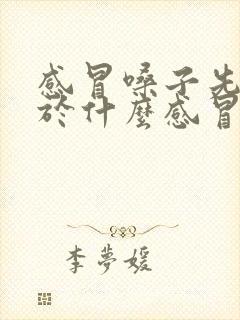 感冒嗓子先
於什麼感冒
李夢媛